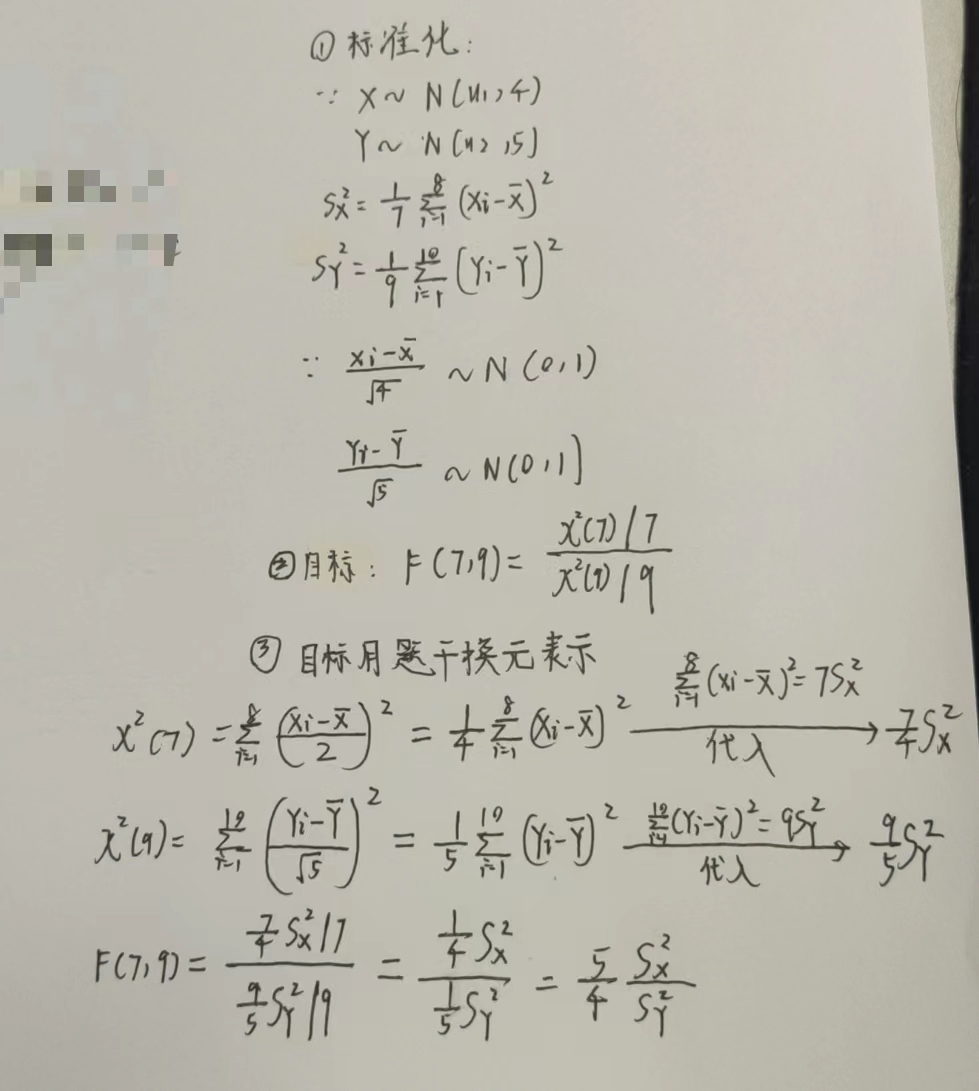 ①标准化:
∵ X ~ N(u₁, 4)
Y ~ N(u₂, 5)
Sx² = 1/7 Σ(i=1→8) (Xi-X̄)²
SY² = 1/9 Σ(i=1→10) (Yi-Ȳ)²
∵ (Xi-X̄)/√4 ~ N(0,1)
(Yi-Ȳ)/√5 ~ N(0,1)
②目标: F(7,9) = (χ²(7)/7)/(χ²(9)/9)
③目标用题干换元表示
χ²(7) = Σ(i=1→8) ((Xi-X̄)/2)² = 1/4 Σ(i=1→8) (Xi-X̄)² Σ(i=1→8) (Xi-X̄)² = 7Sx² 代入 → 7/4 Sx²
χ²(9) = Σ(i=1→10) ((Yi-Ȳ)/√5)² = 1/5 Σ(i=1→10) (Yi-Ȳ)² Σ(i=1→10) (Yi-Ȳ)² = 9SY² 代入 → 9/5 SY²
F(7,9) = (7/4 Sx²/7)/(9/5 SY²/9) = (1/4 Sx²)/(1/5 SY²) = 5/4 Sx²/SY²